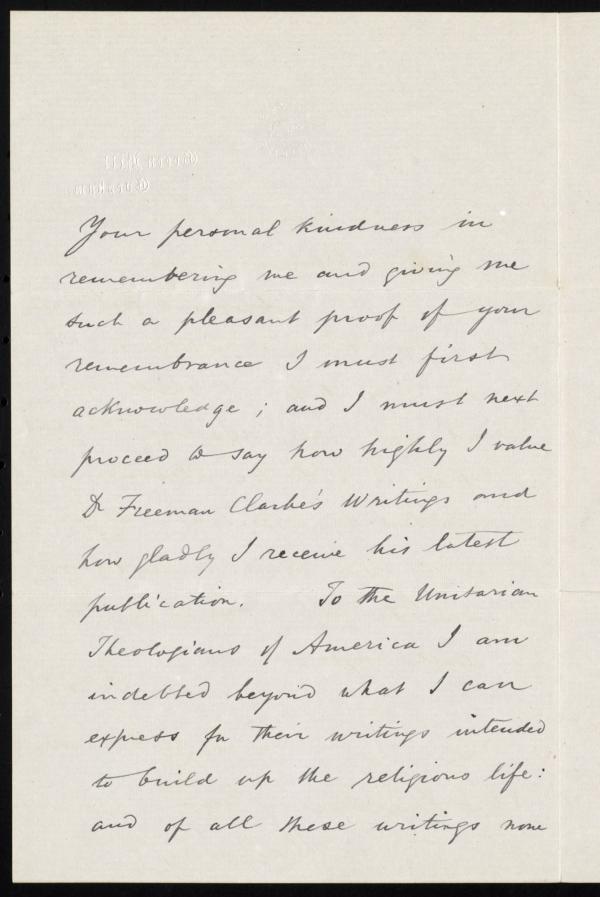 Your personal kindness in
remembering me and giving me
such a pleasant proof of your
remembrance I must first
acknowledge ; and I must next
proceed to say how highly I value
Dr Freeman Clarke's Writings and
how gladly I receive his latest
publication. To the Unitarian
Theologians of America I am
indebted beyond what I can
express for their writings intended
to build up the religious life:
and of all these writings none